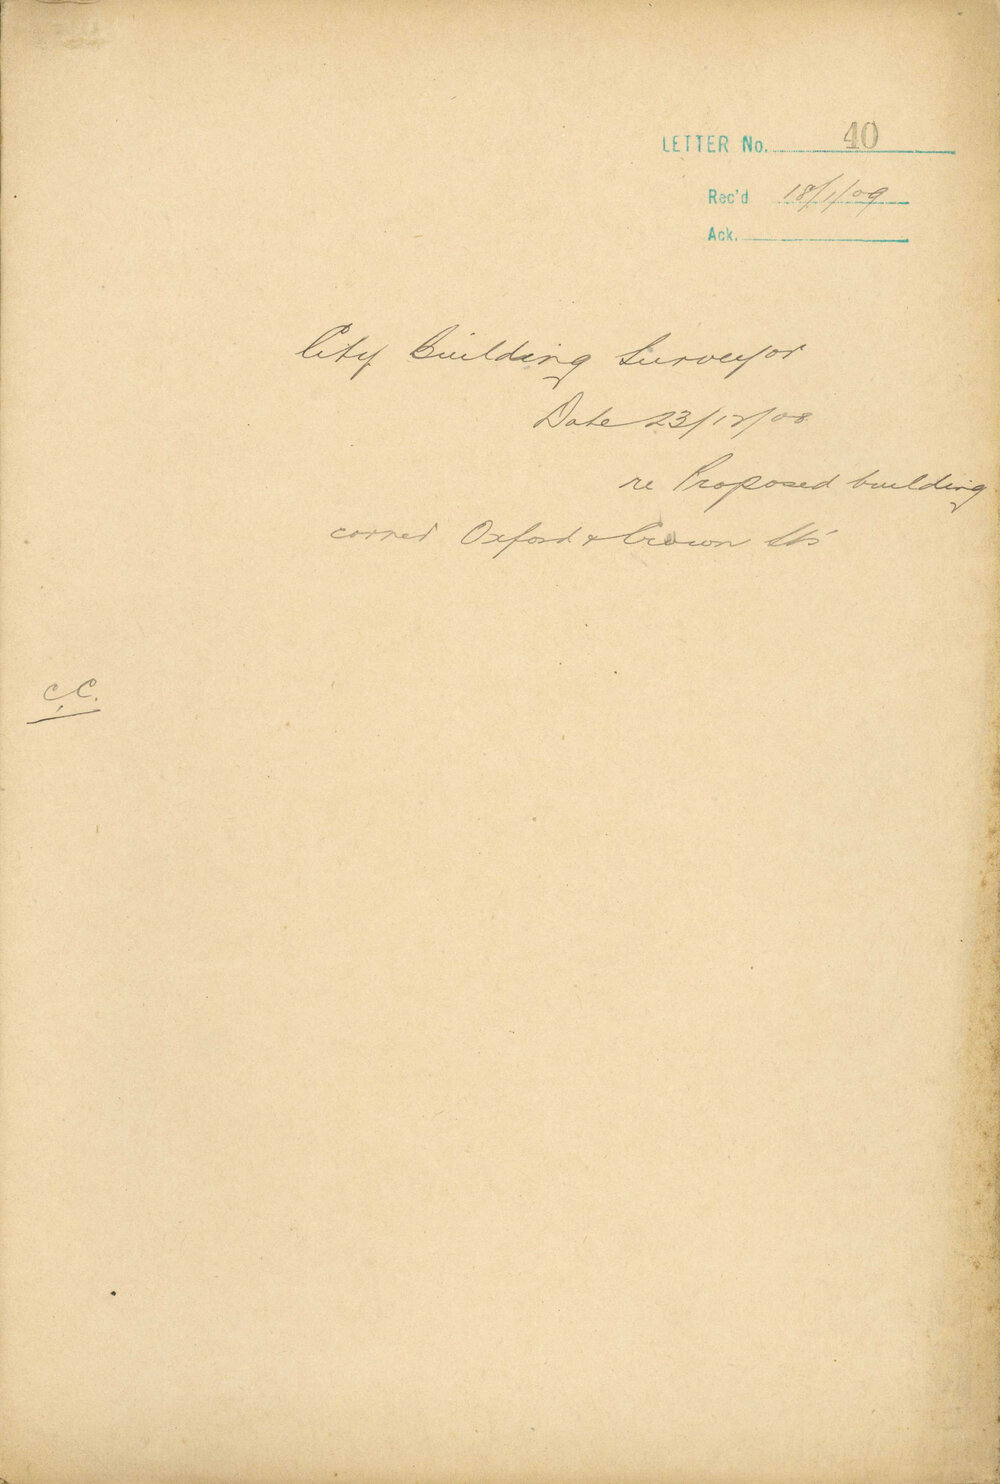 LETTER No. 40
Rec'd 18/1/09
Ack.
City Building Surveyor
Date 23/12/08
re Proposed building
corner Oxford & Crown Sts
C.C.